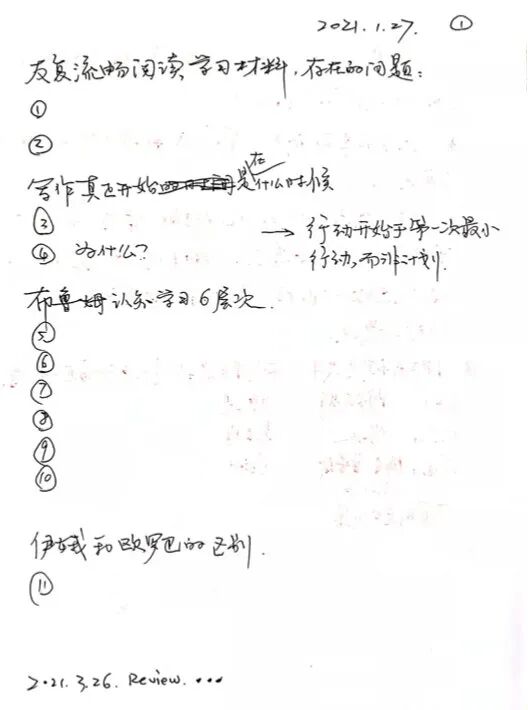 2021.1.27. ①
反复流畅阅读学习材料,存在的问题:
①
②
写作真正开始是在什么时候
③
④ 为什么?
→ 行动开始于第一次最小
行动,而非计划.
布鲁姆认知学习6层次.
⑤
⑥
⑦
⑧
⑨
⑩
伊哦和欧罗巴的区别.
⑪
2.21.3.26. Review. ...